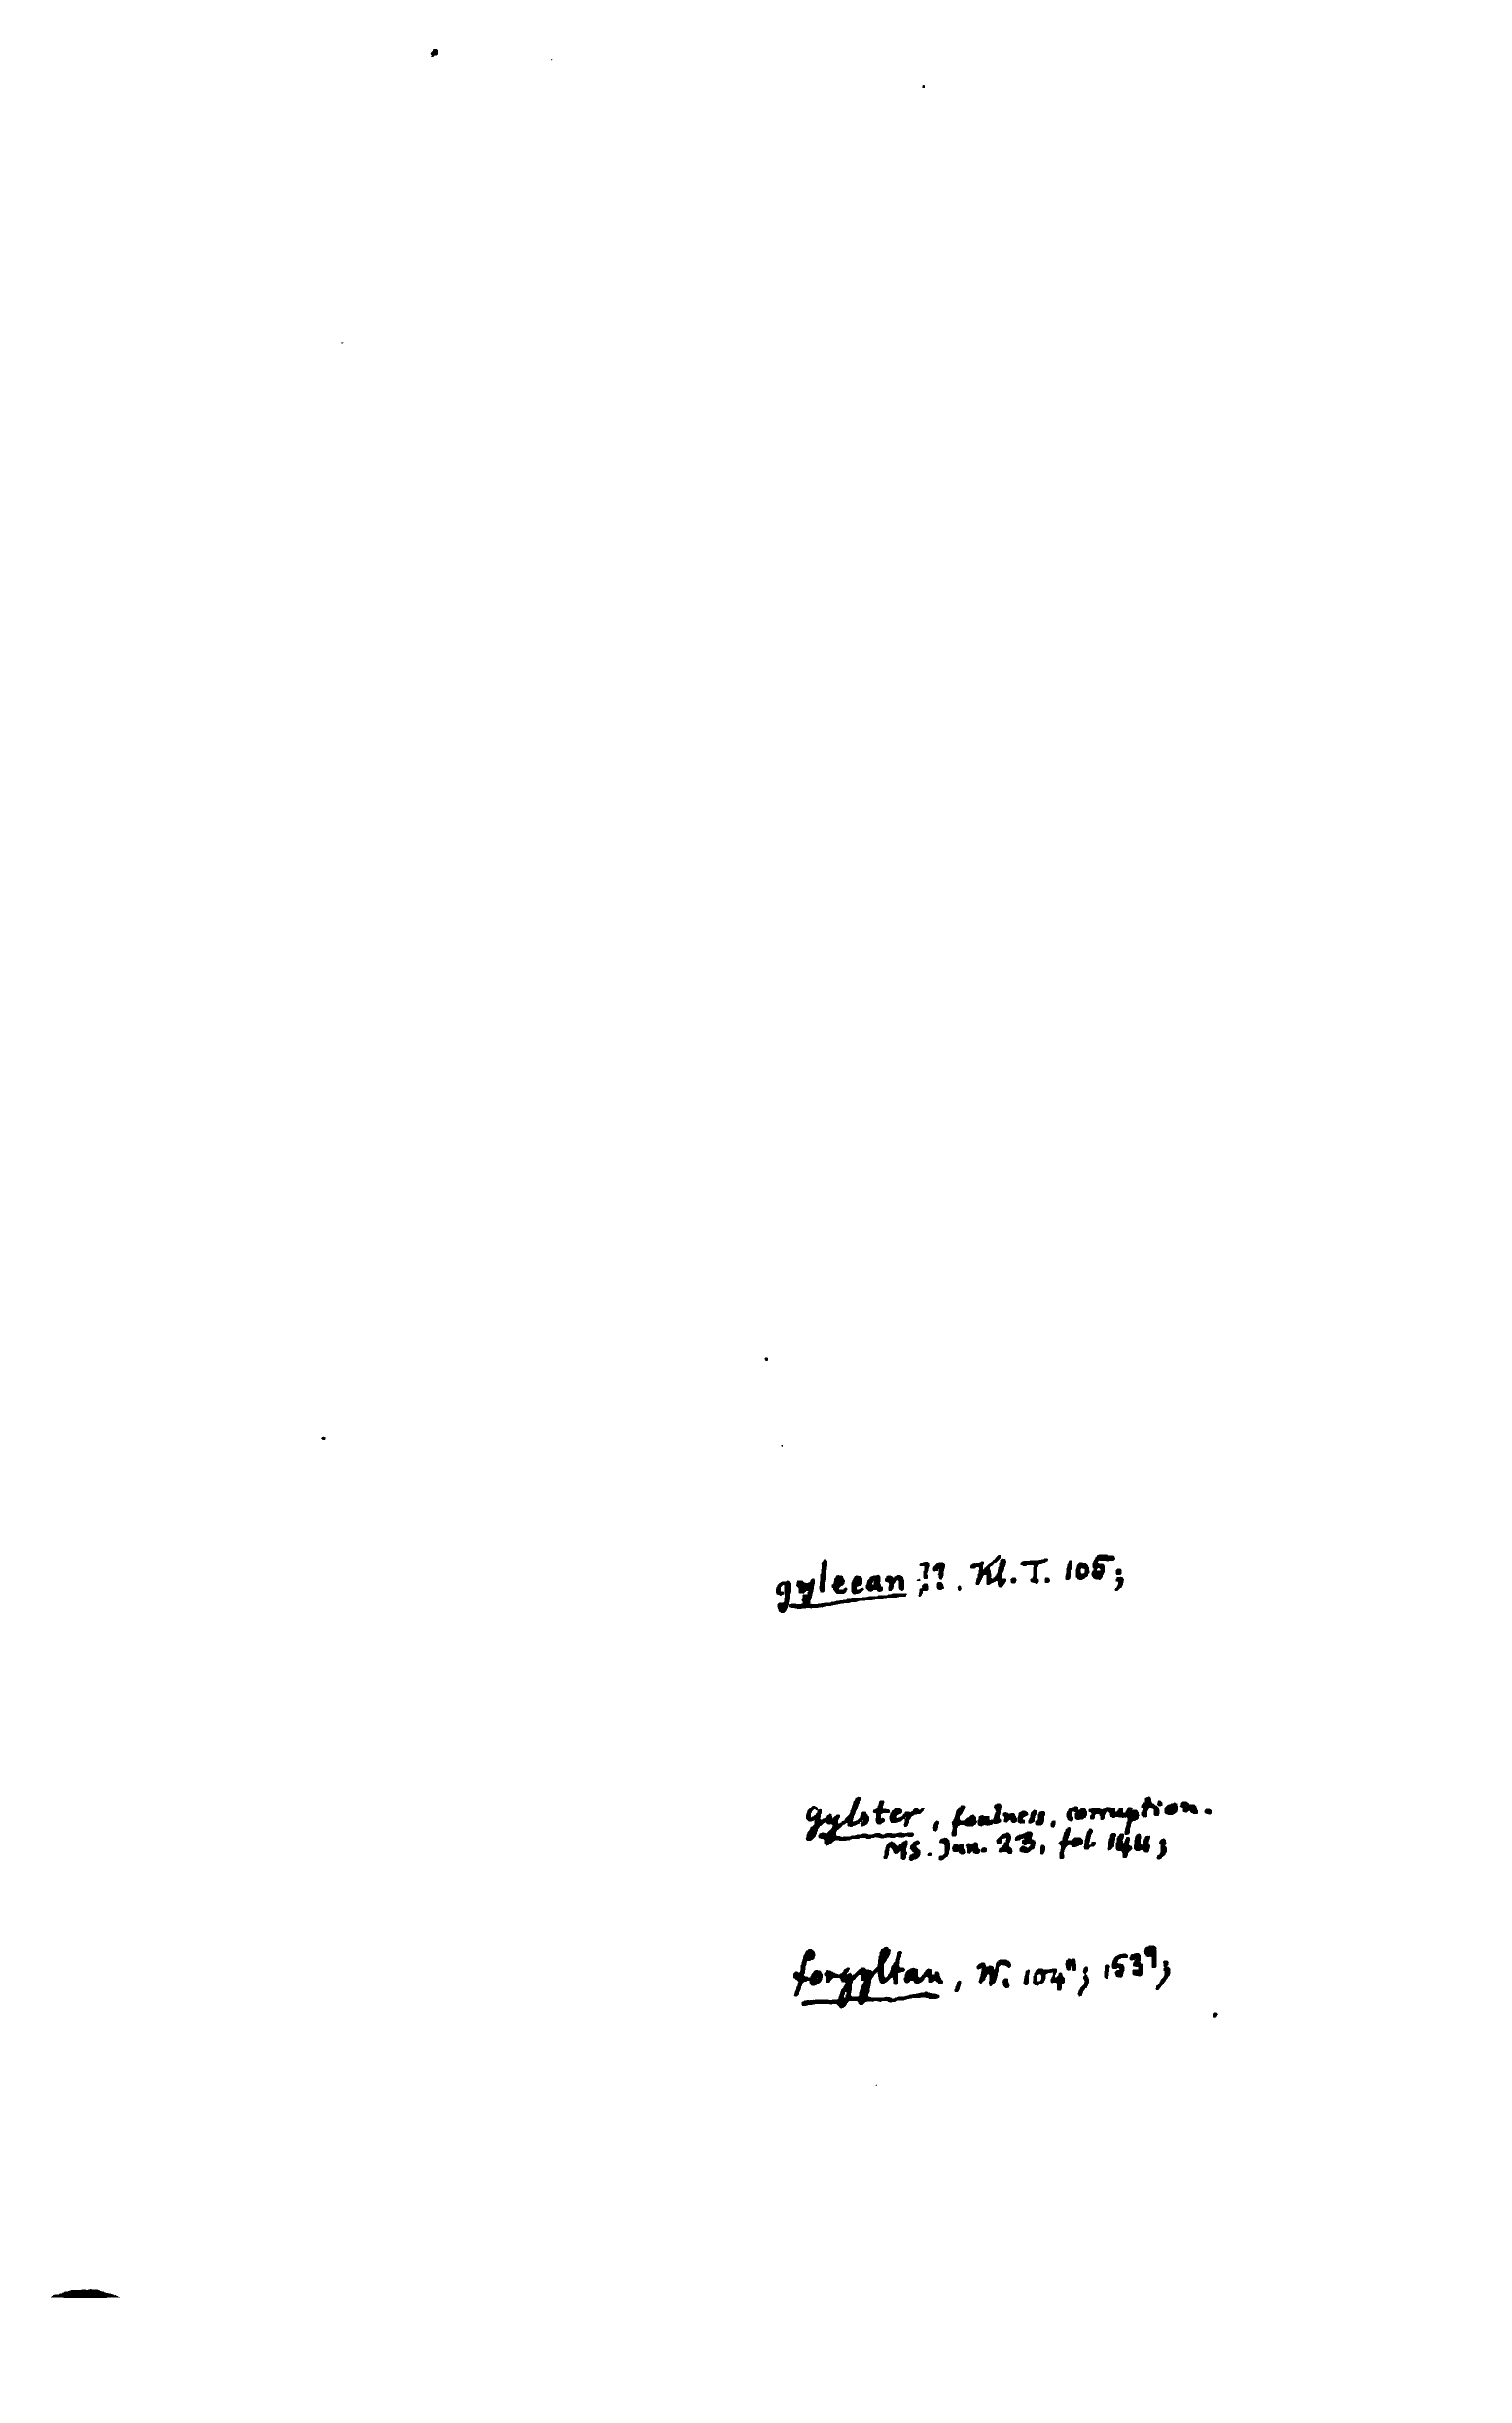 gylecan ;??. Kl. T. 105;
gylster, foulness, corruption.
MS. Jun. 23, fol. 144;
forgyltan, W. 104¹¹; 153⁹;